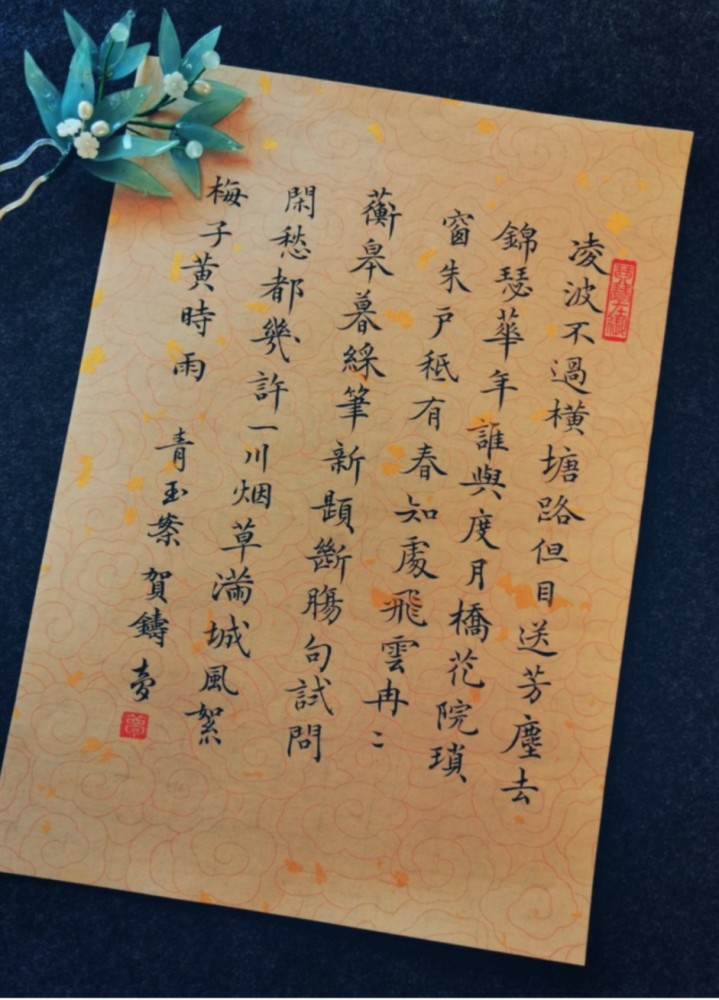 凌波不過橫塘路但目送芳塵去
錦瑟華年誰與度月橋花院瑣
窗朱戶秖有春知處飛雲冉〻
蘅皋暮綵筆新題斷腸句試問
閑愁都幾許一川烟草滿城風絮
梅子黃時雨
青玉案 賀鑄